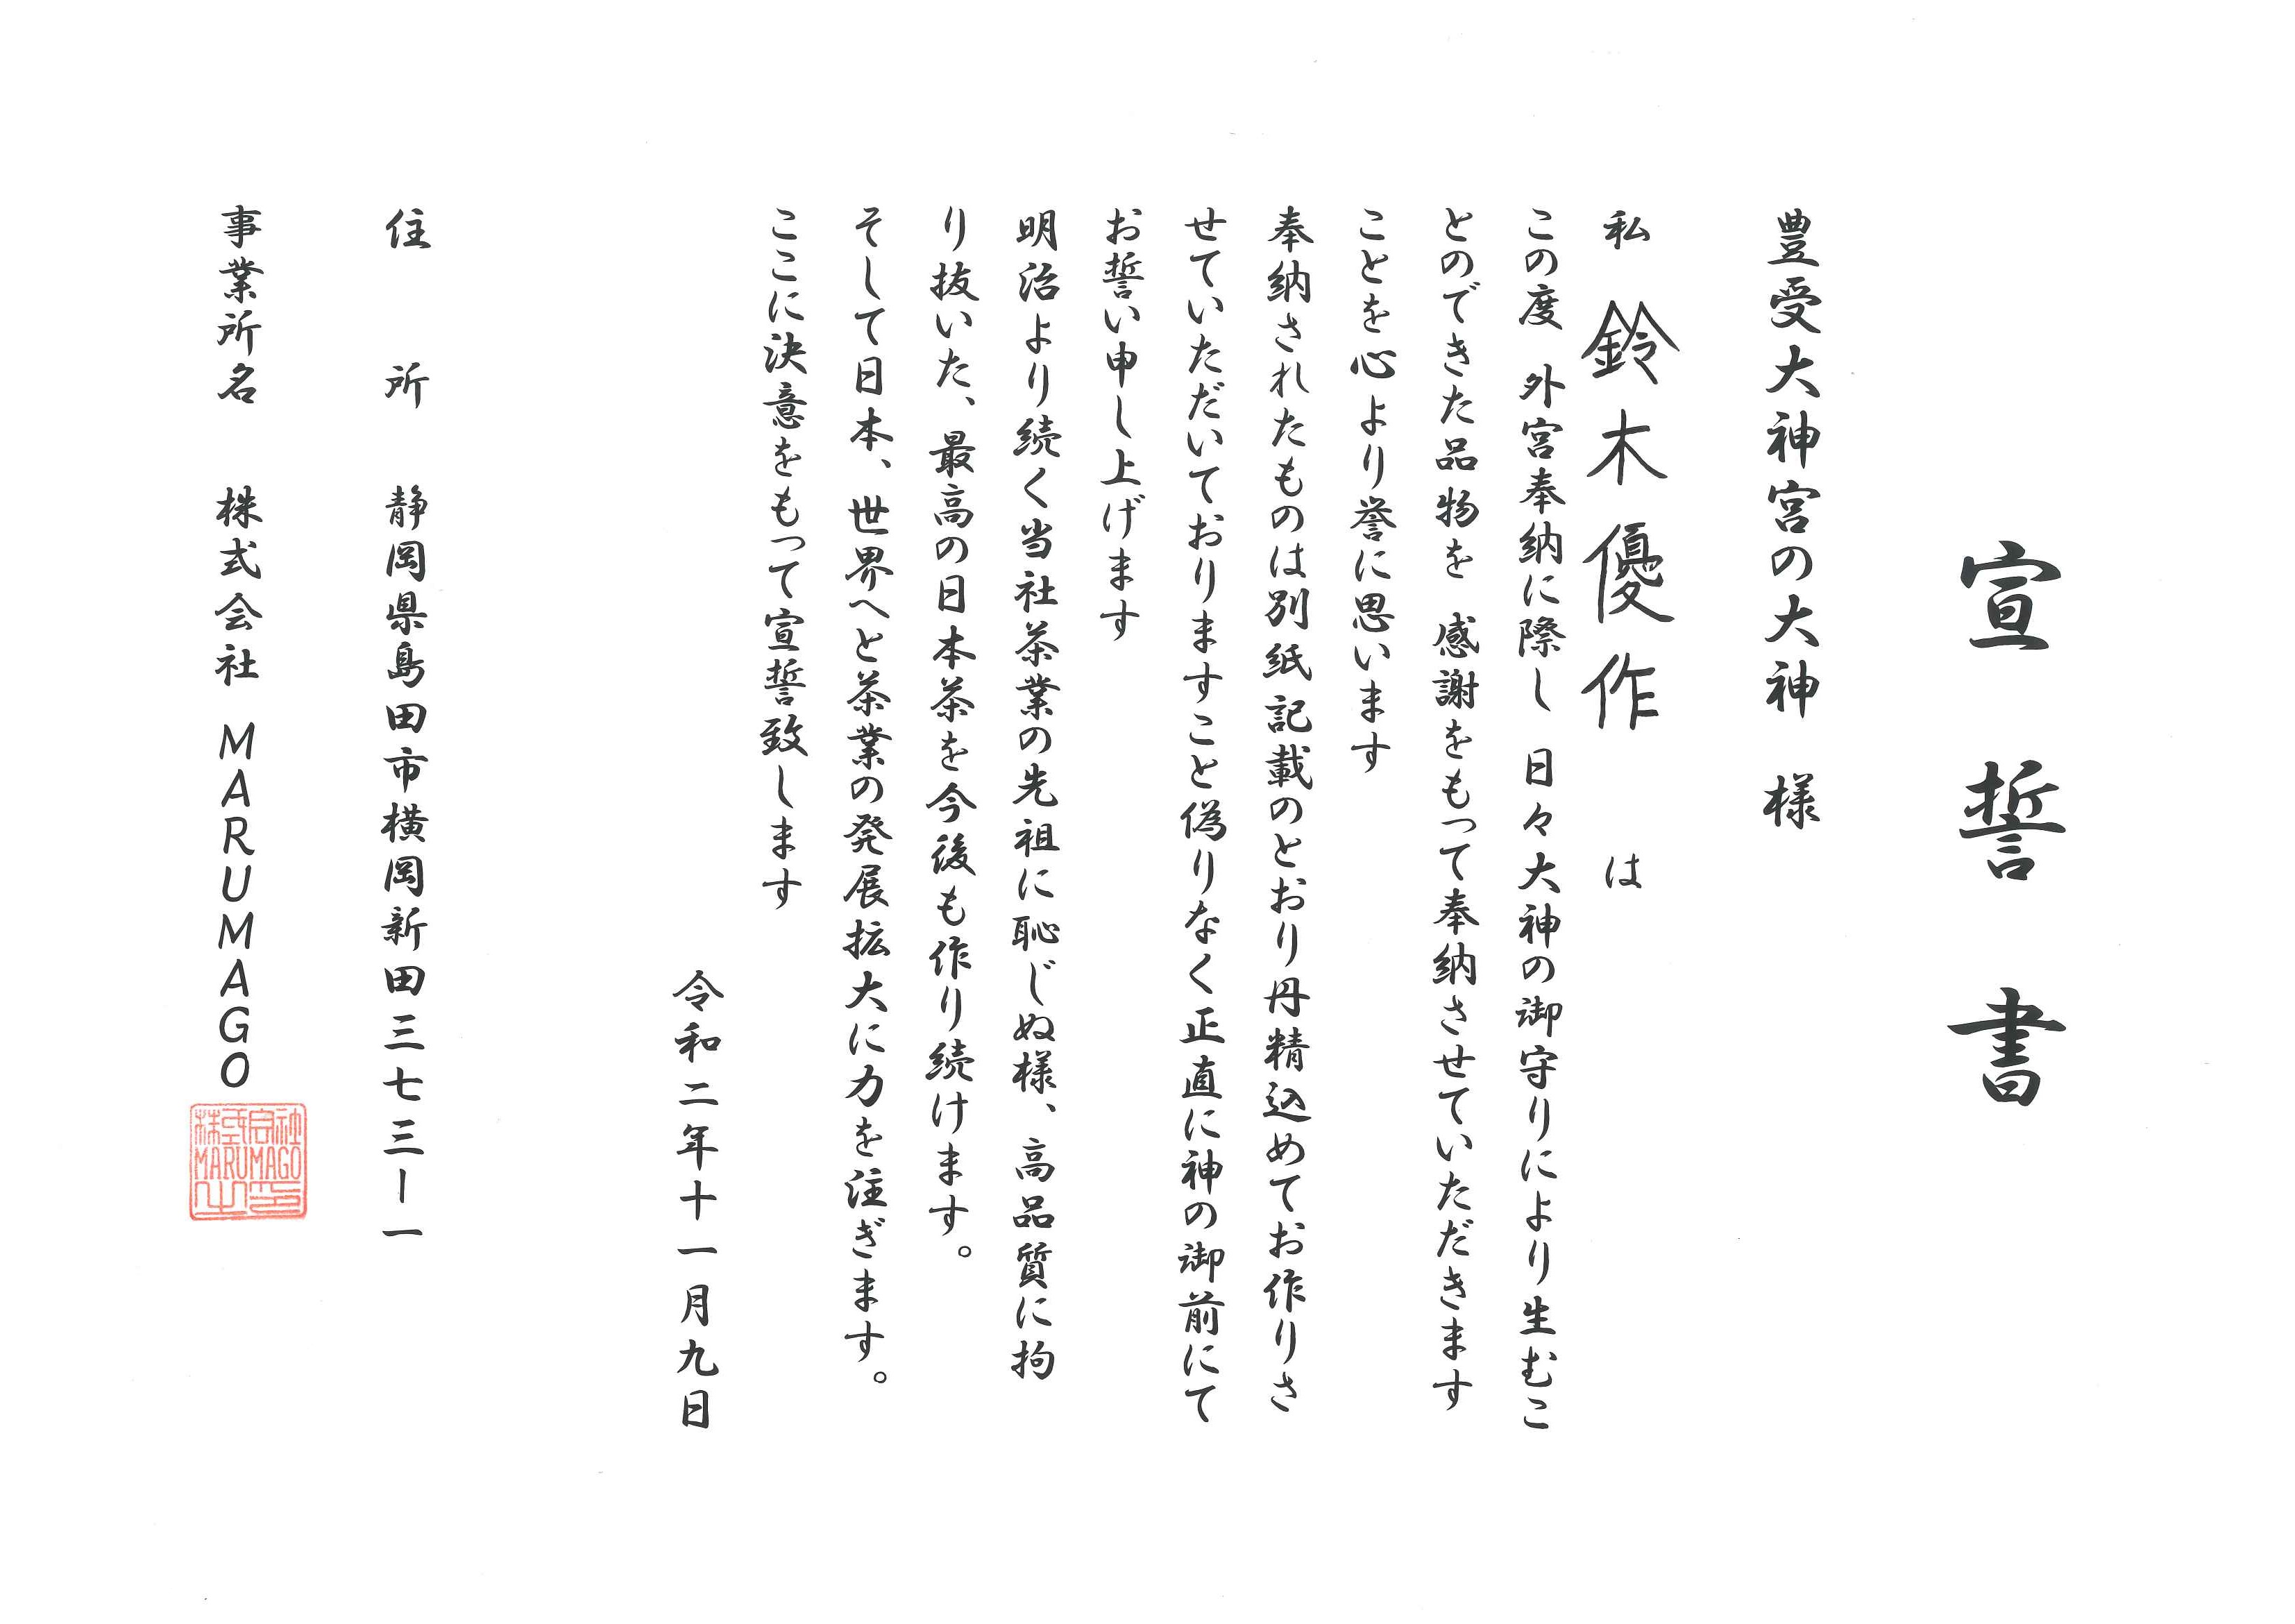 宣誓書
豊受大神宮の大神 様
私 鈴木優作 は
この度 外宮奉納に際し 日々大神の御守りにより生むこ
とのできた品物を 感謝をもって奉納させていただきます
ことを心より誉に思います
奉納されたものは別紙記載のとおり丹精込めてお作りさ
せていただいておりますこと偽りなく正直に神の御前にて
お誓い申し上げます
明治より続く当社茶業の先祖に恥じぬ様、高品質に拘
り抜いた、最高の日本茶を今後も作り続けます。
そして日本、世界へと茶業の発展拡大に力を注ぎます。
ここに決意をもって宣誓致します
令和二年十一月九日
住所 静岡県島田市横岡新田三七三ー一
事業所名 株式会社 MARUMAGO
株式会社
MARUMAGO
之印